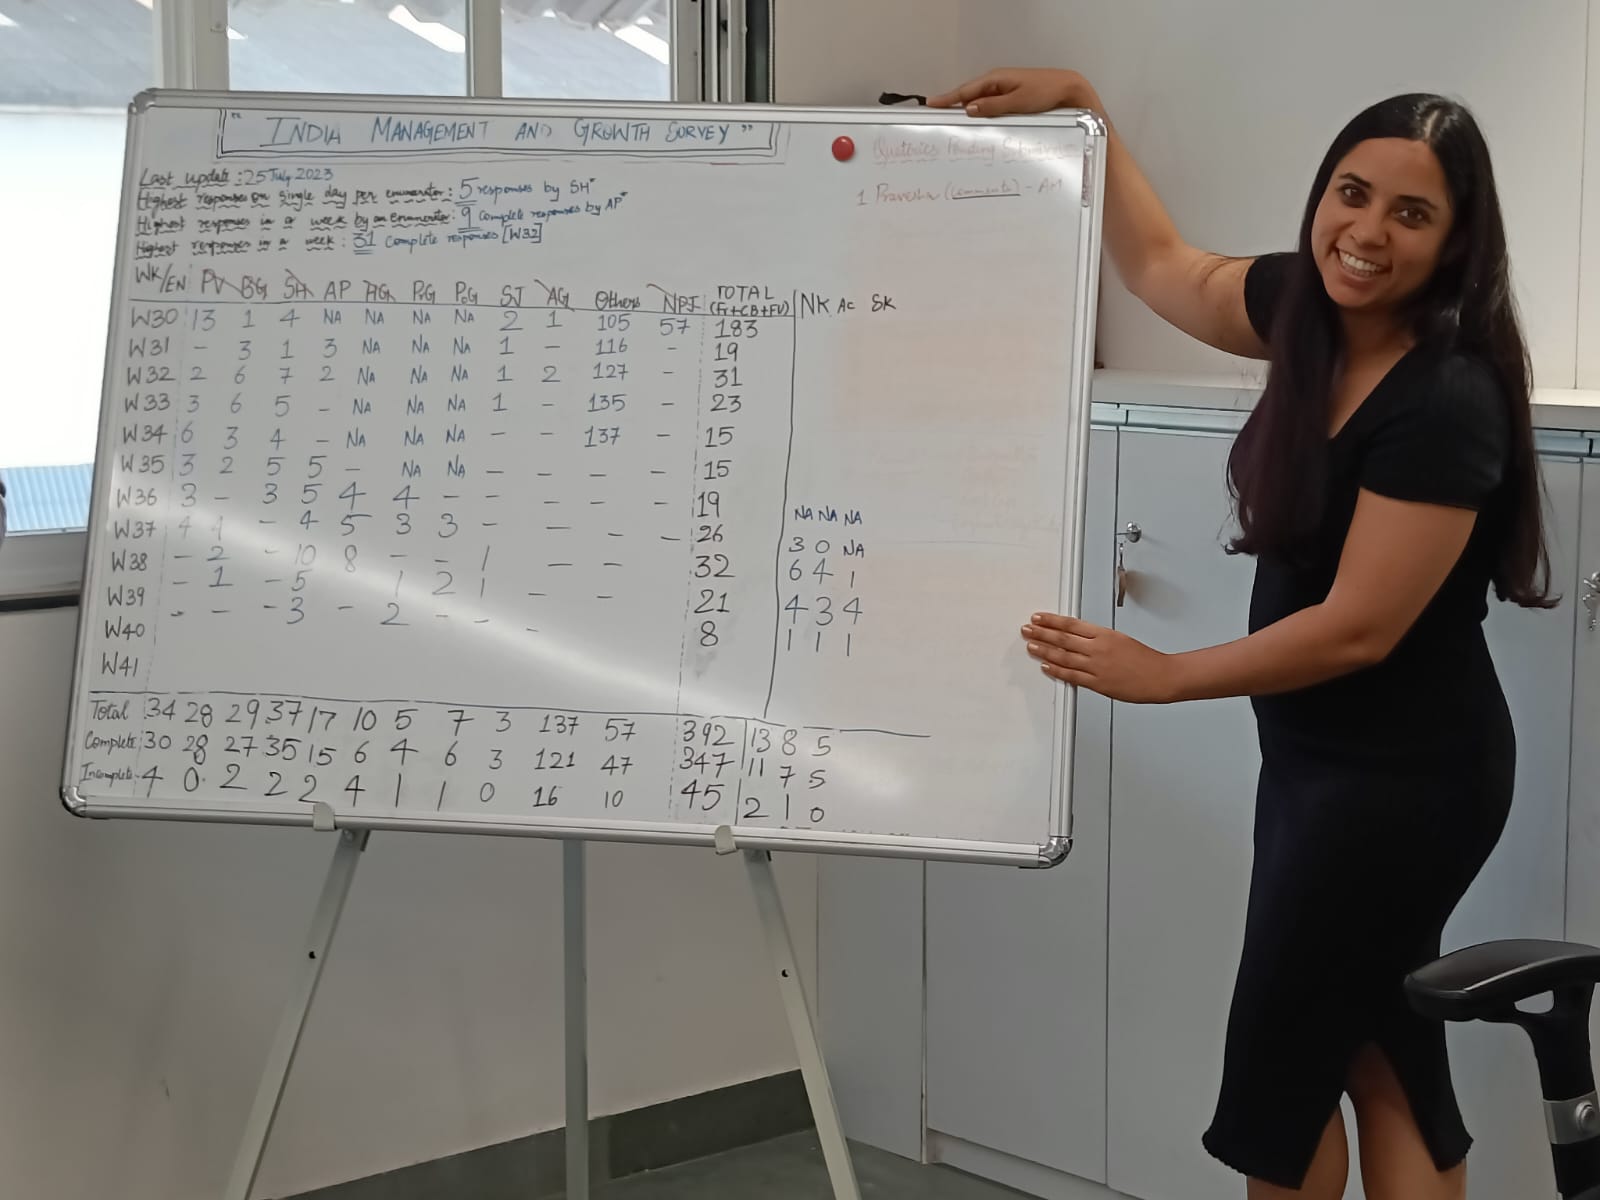 "INDIA MANAGEMENT AND GROWTH SURVEY"
Last update: 25 July 2023
Highest responses on single day per enumerator: 5 responses by SH*
Highest responses in a week by an enumerator: 9 complete responses by AP*
Highest responses in a week: 31 complete responses [W32]
1 Pravesha (comments) - AM
WK/EN PV BG SH AP HG PrG PoG SJ AG Others NPJ TOTAL (Fr+CB+FV) NK AC SK
W30 13 1 4 NA NA NA NA 2 1 105 57 183
W31 - 3 1 3 NA NA NA 1 - 116 - 19
W32 2 6 7 2 NA NA NA 1 2 127 - 31
W33 3 6 5 - NA NA NA 1 - 135 - 23
W34 6 3 4 - NA NA NA - - 137 - 15
W35 3 2 5 5 - NA NA - - - - 15
W36 3 - 3 5 4 4 - - - - - 19 NA NA NA
W37 4 4 - 4 5 3 3 - - - 26 3 0 NA
W38 - 2 - 10 8 - - 1 - - 32 6 4 1
W39 - 1 - 5 1 2 1 - - 21 4 3 4
W40 - - - 3 - 2 - - - 8 1 1 1
W41
Total 34 28 29 37 17 10 5 7 3 137 57 392 13 8 5
Complete 30 28 27 35 15 6 4 6 3 121 47 347 11 7 5
Incomplete 4 0 2 2 2 4 1 1 0 16 10 45 2 1 0